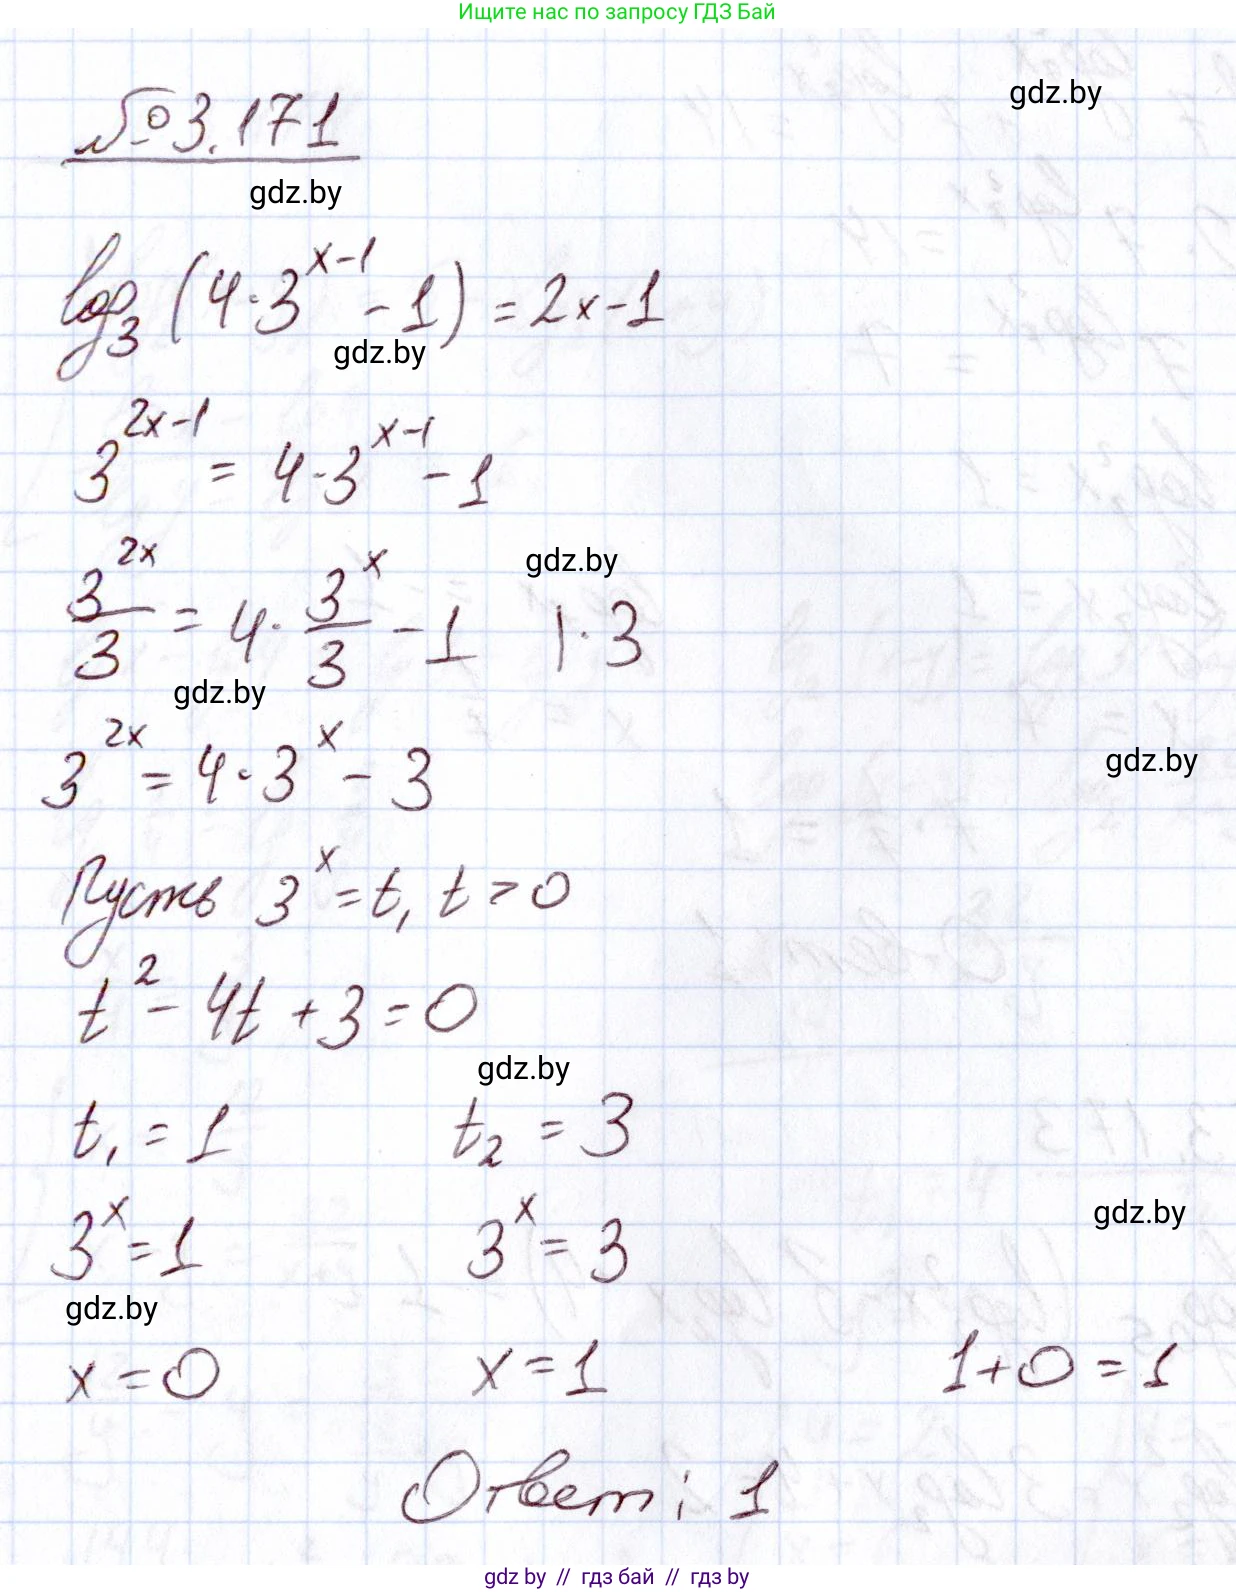 Ищите нас по запросу ГДЗ Бай
gdz.by
№3.171
gdz.by
log₃(4·3^(x-1) - 1) = 2x-1
gdz.by
3^(2x-1) = 4·3^(x-1) - 1
gdz.by
3^(2x)/3 = 4·3^x/3 - 1 |·3
gdz.by
3^(2x) = 4·3^x - 3
gdz.by
Пусть 3^x = t, t > 0
t² - 4t + 3 = 0
gdz.by
t₁ = 1 t₂ = 3
gdz.by
3^x = 1 3^x = 3
gdz.by
x = 0 x = 1 1+0 = 1
Ответ: 1
gdz by // гдз бай // гдз by